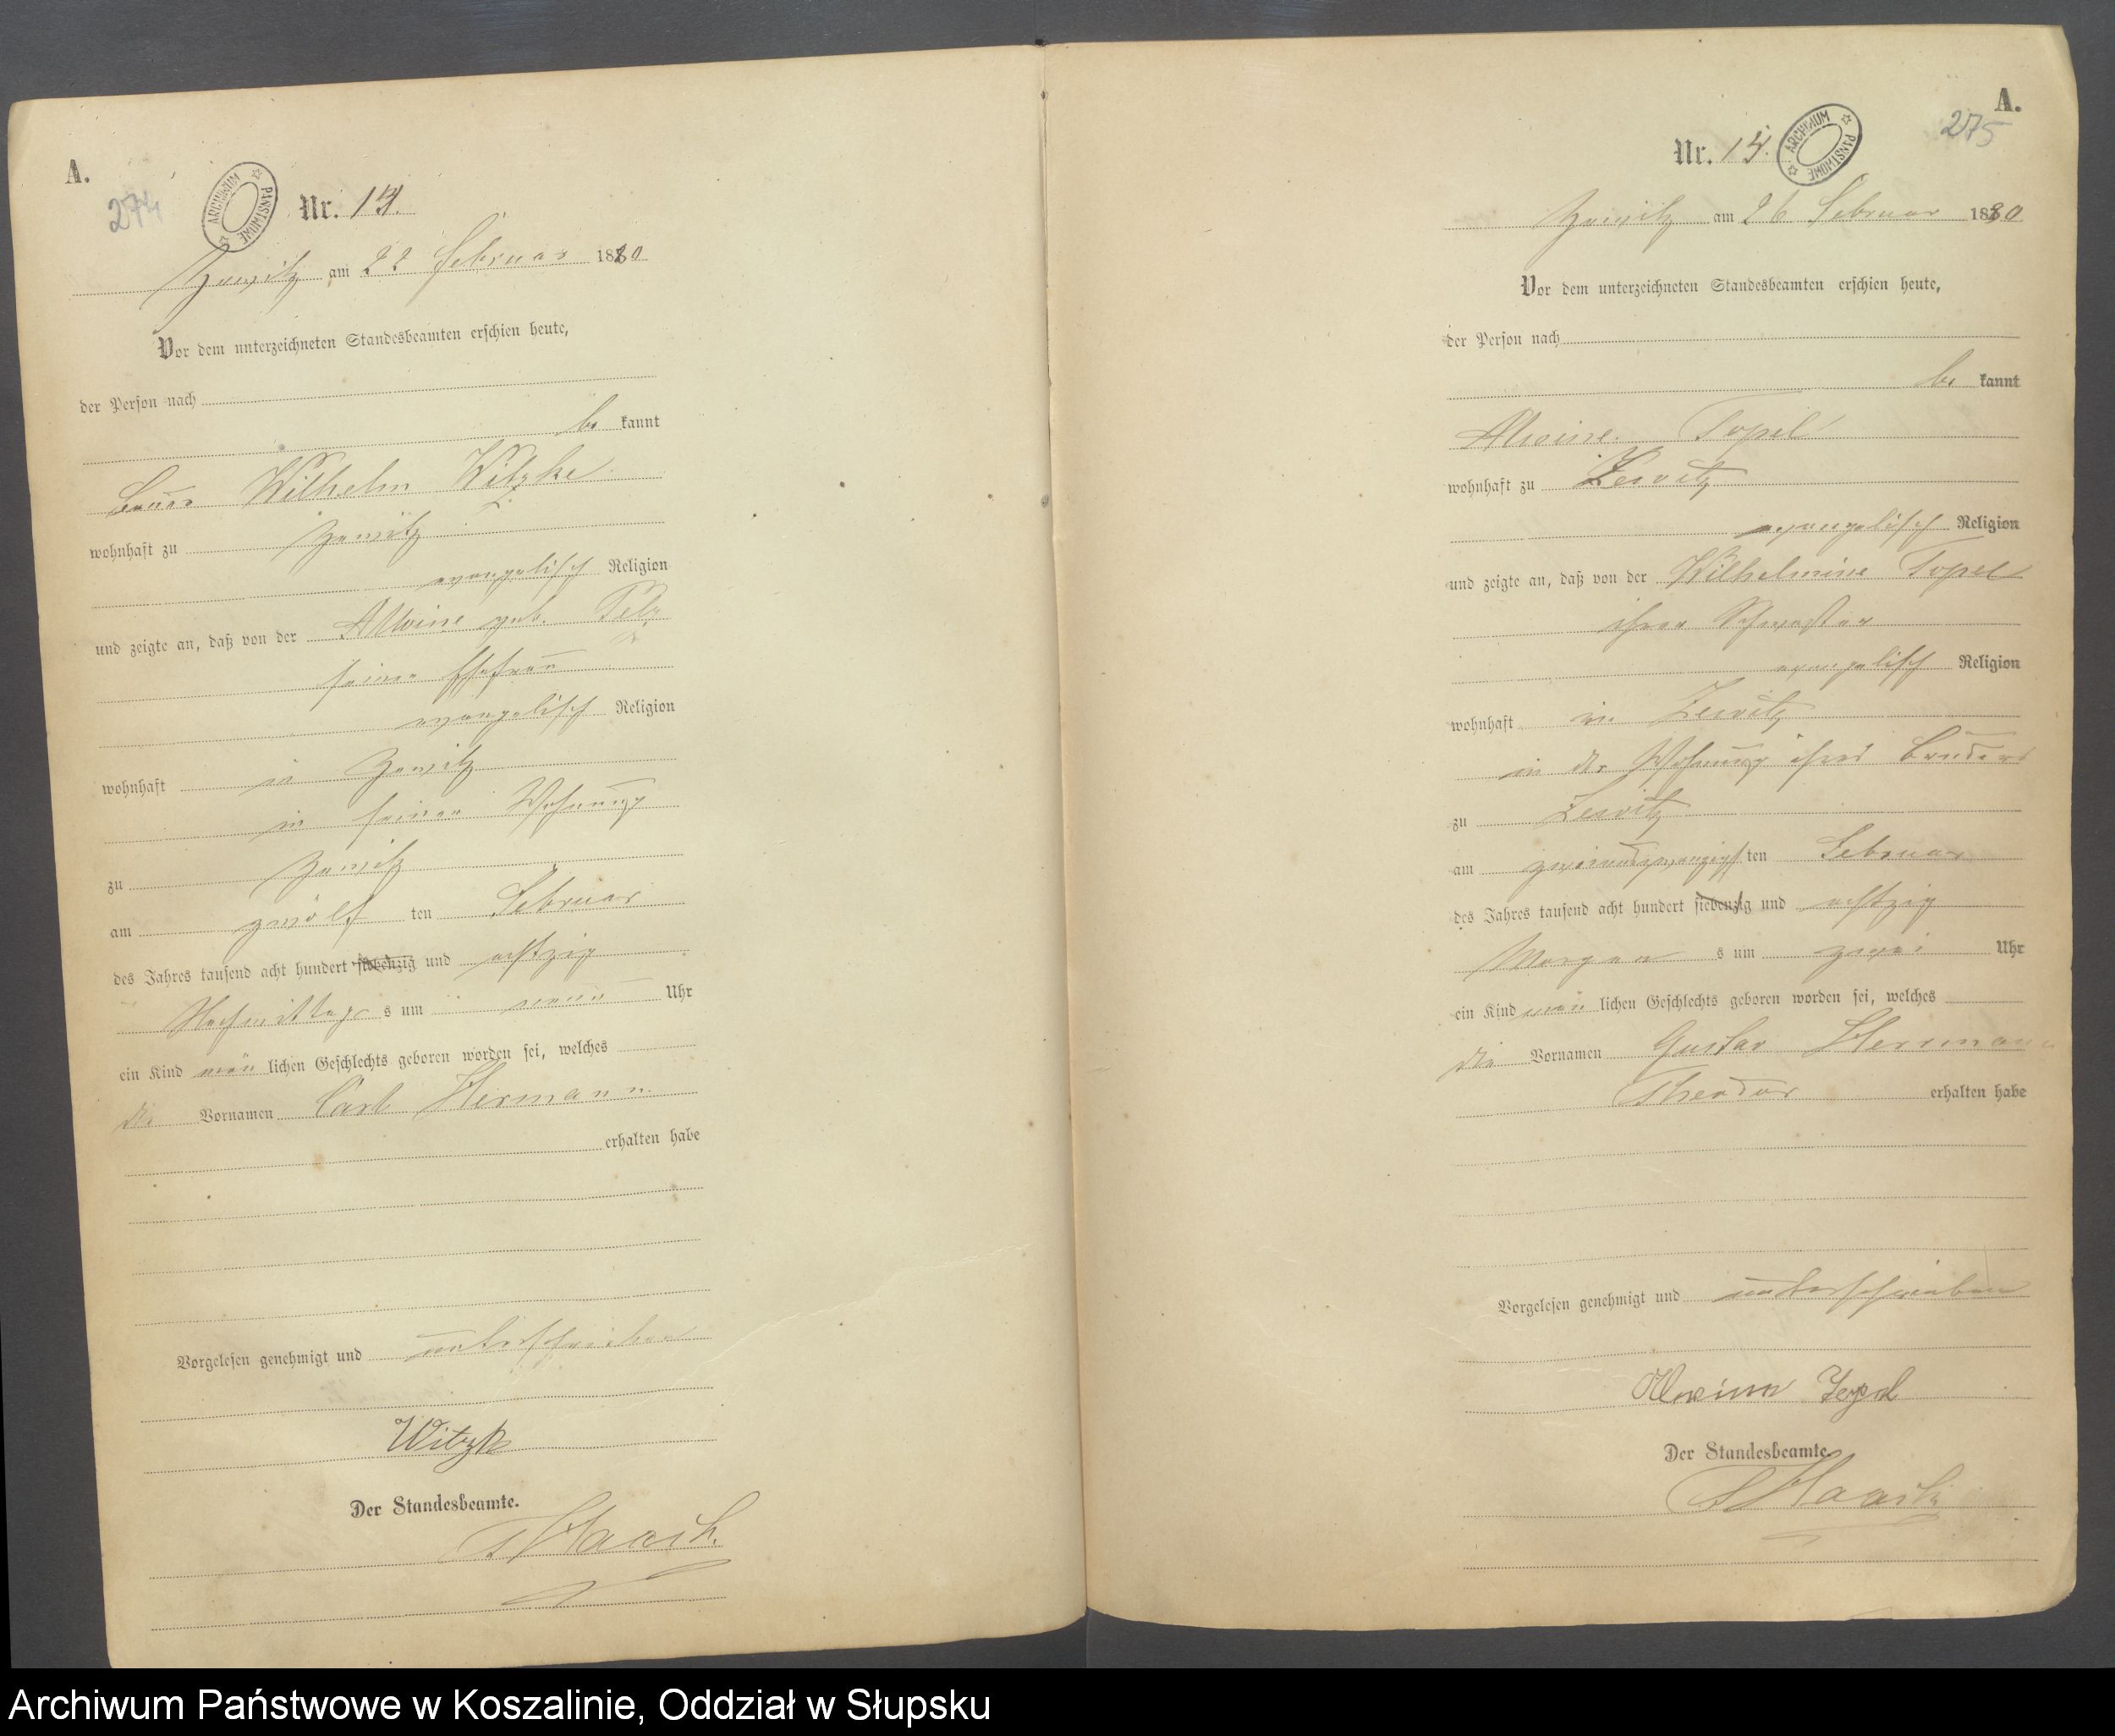 A.
274
ARCHIWUM PAŃSTWOWE
Nr. 13.
Zewitz am 22 Februar 1880
Vor dem unterzeichneten Standesbeamten erschien heute,
der Person nach
be kannt
Bauer Wilhelm Witzke
wohnhaft zu Zewitz
evangelisch Religion
und zeigte an, daß von der Alwine geb. Pelz
seiner Ehefrau
evangelisch Religion
wohnhaft in Zewitz
in seiner Wohnung
zu Zewitz
am zwölf ten Februar
des Jahres tausend acht hundert siebenzig und achtzig
Nachmittag s um neun Uhr
ein Kind män lichen Geschlechts geboren worden sei, welches
die Vornamen Carl Hermann
erhalten habe
Vorgelesen genehmigt und unterschrieben
Witzke
Der Standesbeamte.
A.
275
Nr. 14.
ARCHIWUM PAŃSTWOWE
Zewitz am 26 Februar 1880
Vor dem unterzeichneten Standesbeamten erschien heute,
der Person nach
be kannt
Alwine Topel
wohnhaft zu Zewitz
evangelisch Religion
und zeigte an, daß von der Wilhelmine Topel
ihrer Schwester
evangelisch Religion
wohnhaft in Zewitz
in der Wohnung ihres Bruders
zu Zewitz
am zweiundzwanzigs ten Februar
des Jahres tausend acht hundert siebenzig und achtzig
Morgen s um zwei Uhr
ein Kind män lichen Geschlechts geboren worden sei, welches
die Vornamen Gustav Hermann
Theodor erhalten habe
Vorgelesen genehmigt und unterschrieben
Alwine Topel
Der Standesbeamte
Archiwum Państwowe w Koszalinie, Oddział w Słupsku